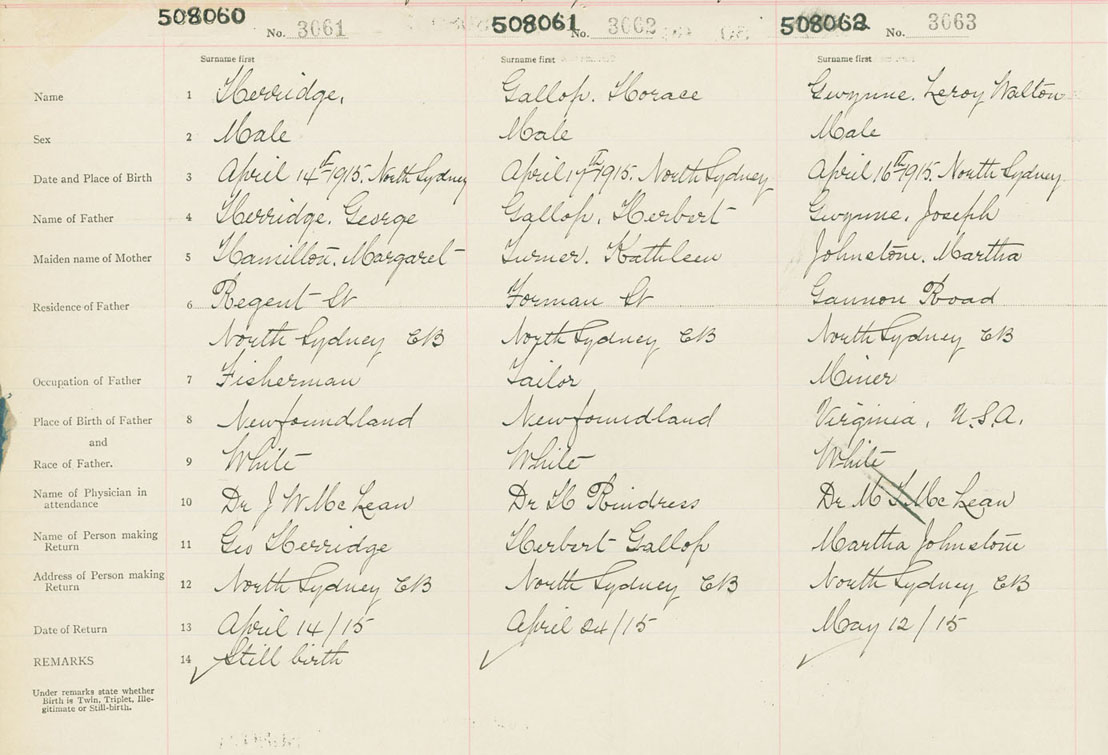 508060 No. 3061 508061 No. 3062 508062 No. 3063
Surname first Surname first Surname first
Name 1 Herridge. Gallop. Horace Gwynne. Leroy Walton
Sex 2 Male Male Male
Date and Place of Birth 3 April 14th 1915. North Sydney April 17th 1915. North Sydney April 16th 1915. North Sydney
Name of Father 4 Herridge. George Gallop. Herbert Gwynne. Joseph
Maiden name of Mother 5 Hamilton. Margaret Turner. Kathleen Johnstone. Martha
Residence of Father 6 Regent St Forman St Gannon Road
North Sydney CB North Sydney CB North Sydney CB
Occupation of Father 7 Fisherman Tailor Miner
Place of Birth of Father 8 Newfoundland Newfoundland Virginia, U.S.A.
and
Race of Father. 9 White White White
Name of Physician in
attendance 10 Dr J W McLean Dr H Rindress Dr M T McLean
Name of Person making
Return 11 Geo Herridge Herbert Gallop Martha Johnstone
Address of Person making
Return 12 North Sydney CB North Sydney CB North Sydney CB
Date of Return 13 April 14/15 April 24/15 May 12/15
REMARKS 14 Still birth
Under remarks state whether
Birth is Twin, Triplet, Ille-
gitimate or Still-birth.